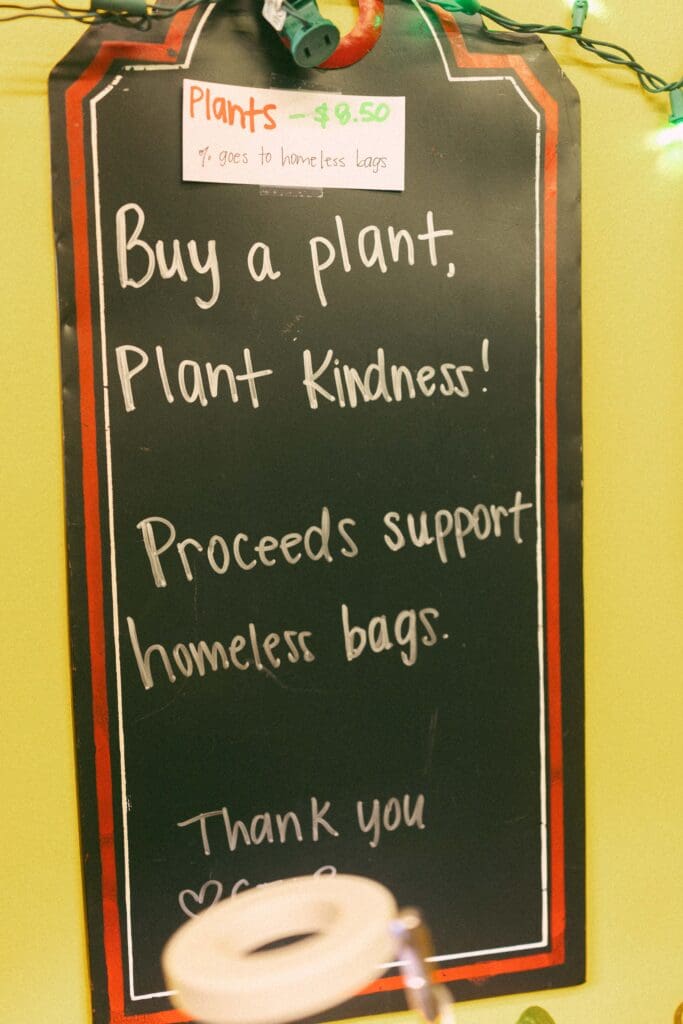 Plants - $8.50
% goes to homeless bags
Buy a plant,
Plant Kindness!
Proceeds support
homeless bags.
Thank you